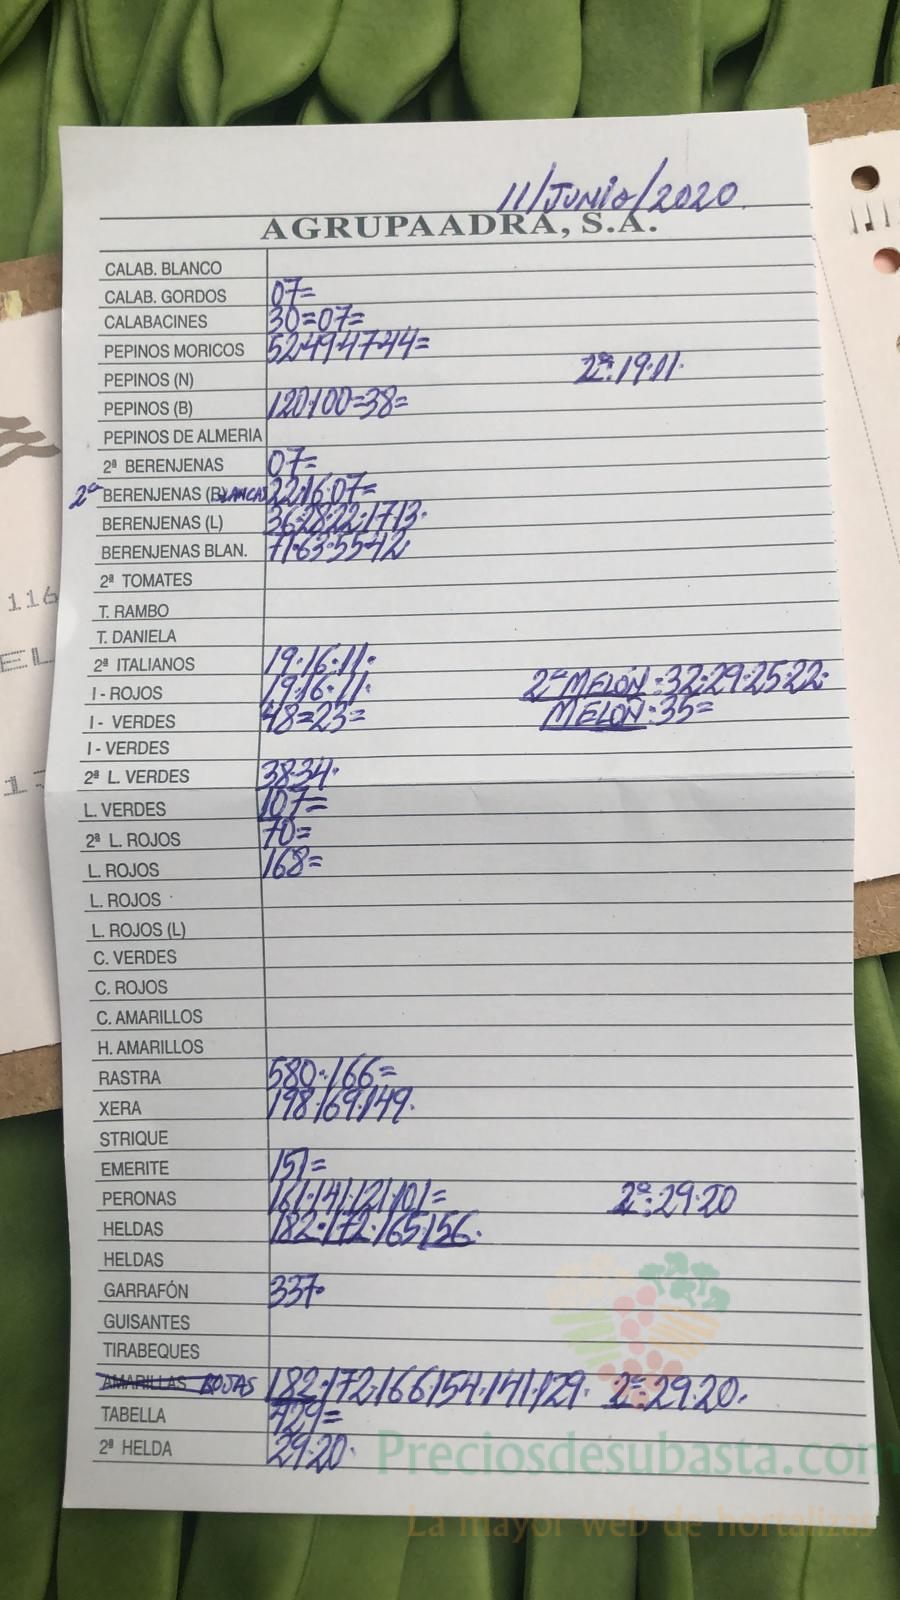 11/JUNIO/2020.
AGRUPAADRA, S.A.
CALAB. BLANCO
CALAB. GORDOS 07=
CALABACINES 30=07=
PEPINOS MORICOS 52·49·47·44=
PEPINOS (N) 2ª:19·11·
PEPINOS (B) 120·100=38=
PEPINOS DE ALMERIA
2ª BERENJENAS 07=
2ª BERENJENAS (BLANCAS 22·16·07=
BERENJENAS (L) 36·28·22·17·13·
BERENJENAS BLAN. 71·63·55·42
2ª TOMATES
T. RAMBO
T. DANIELA
2ª ITALIANOS 19·16·11·
I - ROJOS 19·16·11· 2ª MELON:32·29·25·22·
I - VERDES 48=23= MELON:35=
I - VERDES
2ª L. VERDES 38·34·
L. VERDES 107=
2ª L. ROJOS 70=
L. ROJOS 168=
L. ROJOS
L. ROJOS (L)
C. VERDES
C. ROJOS
C. AMARILLOS
H. AMARILLOS
RASTRA 580·166=
XERA 198·169·149·
STRIQUE
EMERITE 151=
PERONAS 161·141·121·101= 2ª:29·20
HELDAS 182·172·165·156·
HELDAS
GARRAFÓN 337·
GUISANTES
TIRABEQUES
AMARILLAS ROJAS 182·172·166·154·141·129· 2ª:29·20·
TABELLA 429=
2ª HELDA 29·20·
116
EL
Preciosdesubasta.com
La mayor web de hortalizas